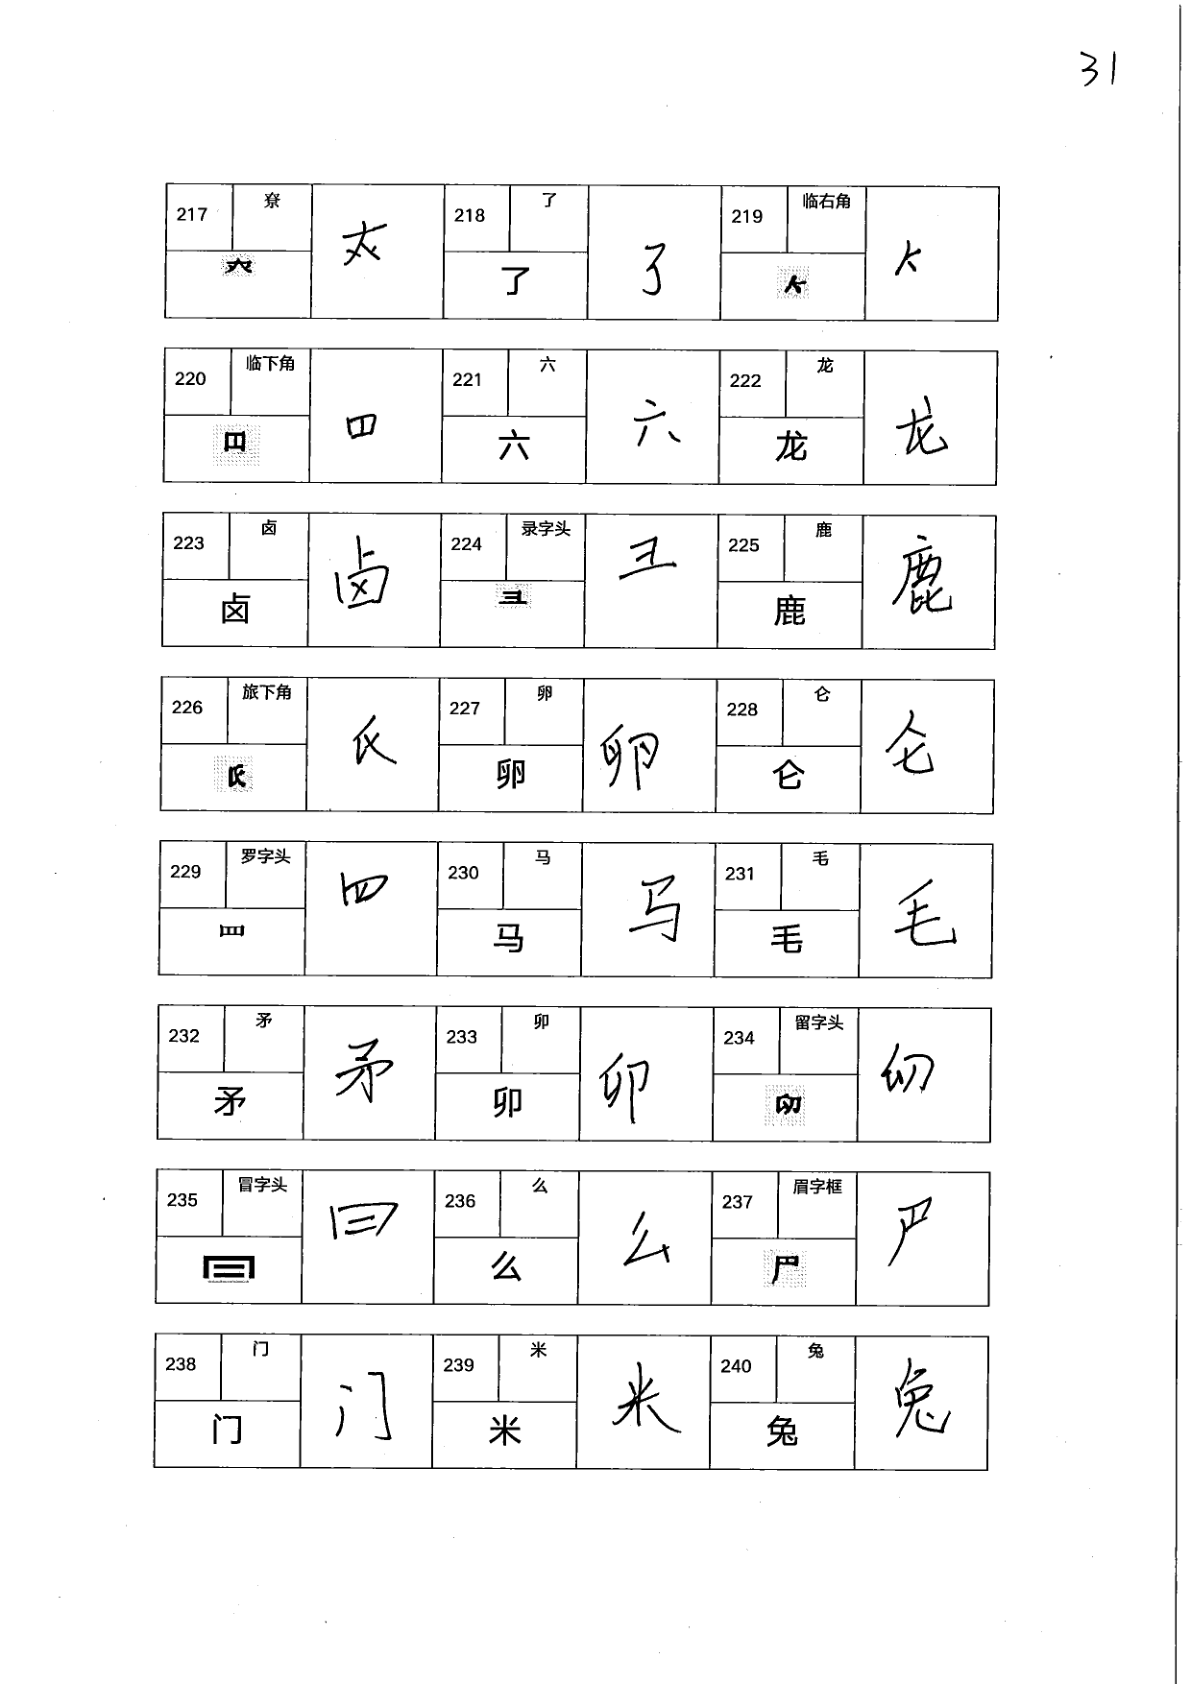 31
217 尞 了 218 了 219 临右角
了 了
220 临下角 四 221 六 222 龙
六 六 龙 龙
223 卤 卤 224 录字头 彐 225 鹿 鹿
卤 鹿
226 旅下角 227 卵 卵 228 仑 仑
卵 仑
229 罗字头 罒 230 马 马 231 毛 毛
罒 马 毛
232 矛 矛 233 卯 卯 234 留字头
矛 卯
235 冒字头 236 么 么 237 眉字框
么
238 门 门 239 米 米 240 兔 兔
门 米 兔